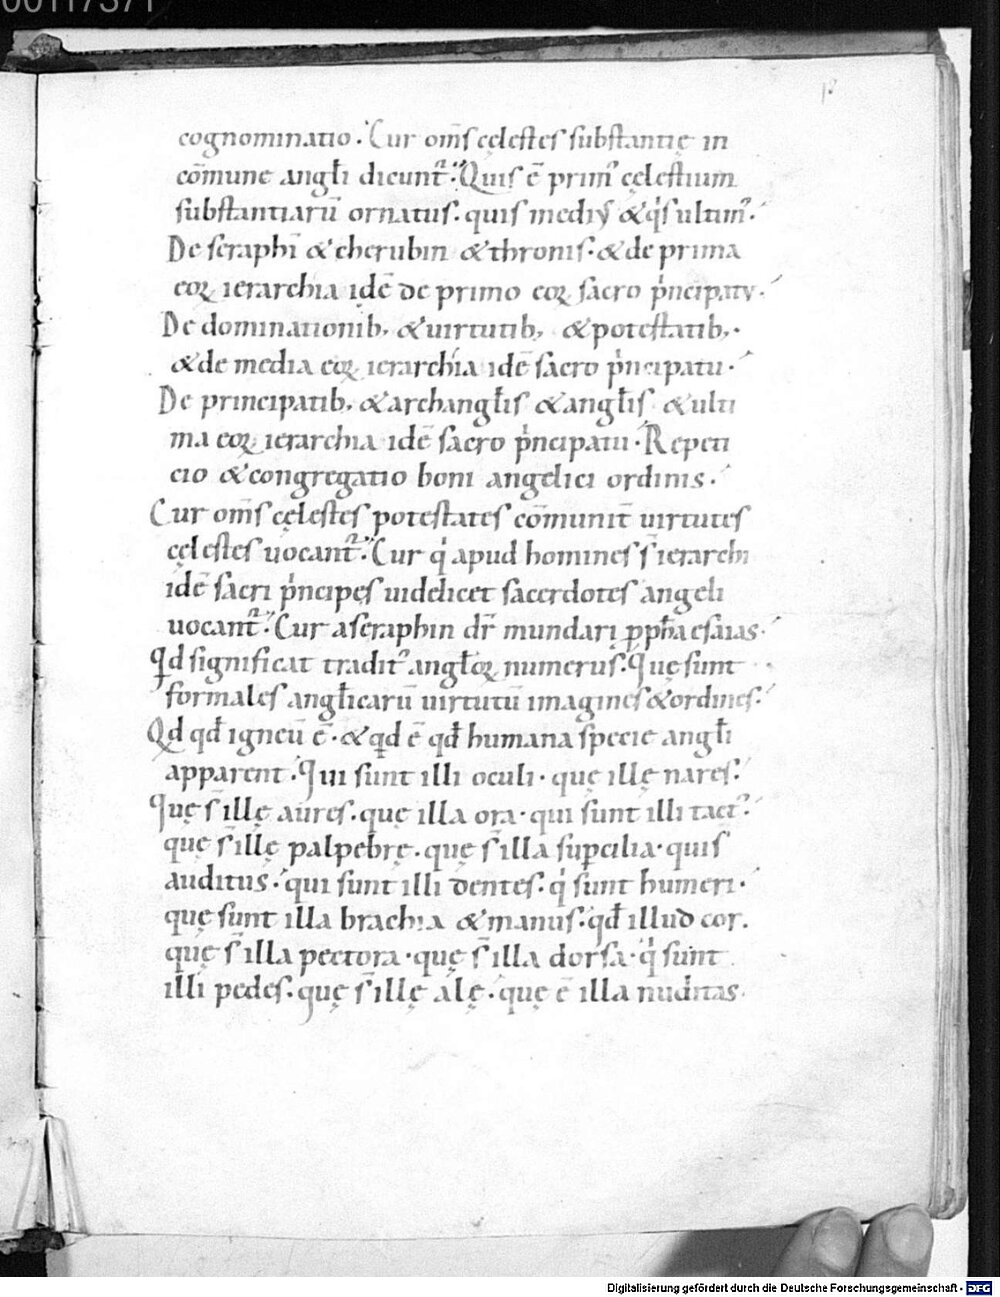 00117371
18
cognominatio. Cur om̄s cęlestes substantię in
cōmune angłi dicunt᷑. Quis ē prim᷑ cęlestium
substantiarū ornatus. quis medi᷒ & q̍s ultim᷑.
De seraphī & cherubin & thronis. & de prima
eoꝝ ierarchia idē de primo eoꝝ sacro p̍ncipatu.
De dominationib; & uirtutib; & potestatib;.
& de media eoꝝ ierarchia idē sacro p̍ncipatu.
De principatib; & archangłis & angłis & ulti
ma eoꝝ ierarchia idē sacro p̍ncipatu. Repeti
cio & congregatio boni angelici ordinis.
Cur om̄s cęlestes potestates cōmunit̄ uirtutes
cęlestes uocant᷑. Cur q̍ apud homines s̄ ierarchi
idē sacri p̍ncipes uidelicet sacerdotes angeli
uocant᷑. Cur a seraphin dr̄ mundari ꝓph̄a esaias.
Qd significat tradit᷑ angłoꝝ numerus. Quę sunt
formales angłicarū uirtutū imagines & ordines.
Qd qđ igneū ē. & qd ē qđ humana specie angłi
apparent. Qui sunt illi oculi. quę illę nares.
Quę s̄ illę aures. quę illa ora. qui sunt illi tact᷑.
quę s̄ illę palpebrę. quę s̄ illa suꝑcilia. quis
auditus. qui sunt illi dentes. q̍ sunt humeri.
quę sunt illa brachia & manus. qđ illud cor.
quę s̄ illa pectora. quę s̄ illa dorsa. q̍ sunt
illi pedes. quę s̄ illę alę. quę ē illa nuditas.
Digitalisierung gefördert durch die Deutsche Forschungsgemeinschaft - DFG